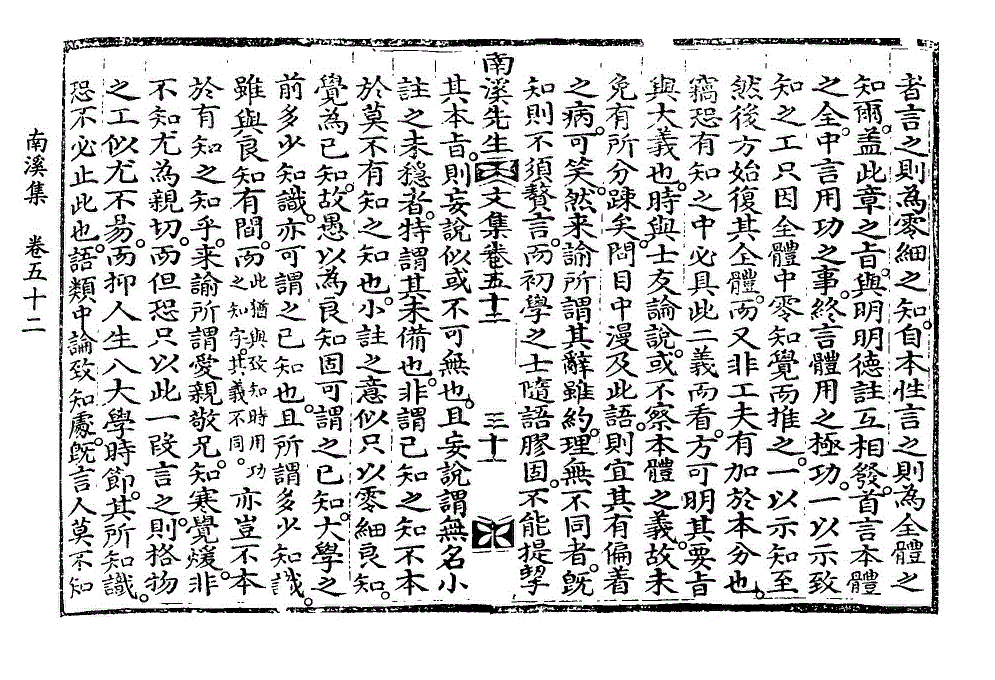 者言之則爲零細之知。自本性言之則爲全體之
知爾。蓋此章之旨。與明明德註互相發。首言本體
之全。中言用功之事。終言體用之極功。一以示致
知之工只因全體中零知覺而推之。一以示知至
然後方始復其全體。而又非工夫有加於本分也。
竊恐有知之中必具此二義而看。方可明其要旨
與大義也。時與士友論說。或不察本體之義。故未
免有所分疎矣。問目中漫及此語。則宜其有偏着
之病。可笑。然來諭所謂其辭雖約。理無不同者。旣
知則不須贅言。而初學之士隨語膠固。不能提挈
南溪先生文集卷五十二 三十一
其本旨。則妄說似或不可無也。且妄說謂無名小
註之未穩者。特謂其未備也。非謂已知之知不本
於莫不有知之知也。小註之意似只以零細良知。
覺爲已知。故愚以爲良知固可謂之已知。大學之
前多少知識。亦可謂之已知也。且所謂多少知識。
雖與良知有間。而此猶與致知時用功之知字。其義不同。亦豈不本
於有知之知乎。來諭所謂愛親敬兄。知寒覺煖。非
不知尤爲親切。而但恐只以此一段言之。則格物
之工似尤不易。而抑人生八大學時節。其所知識。
恐不必止此也。語類中論致知處。旣言人莫不知
南溪集 卷五十二